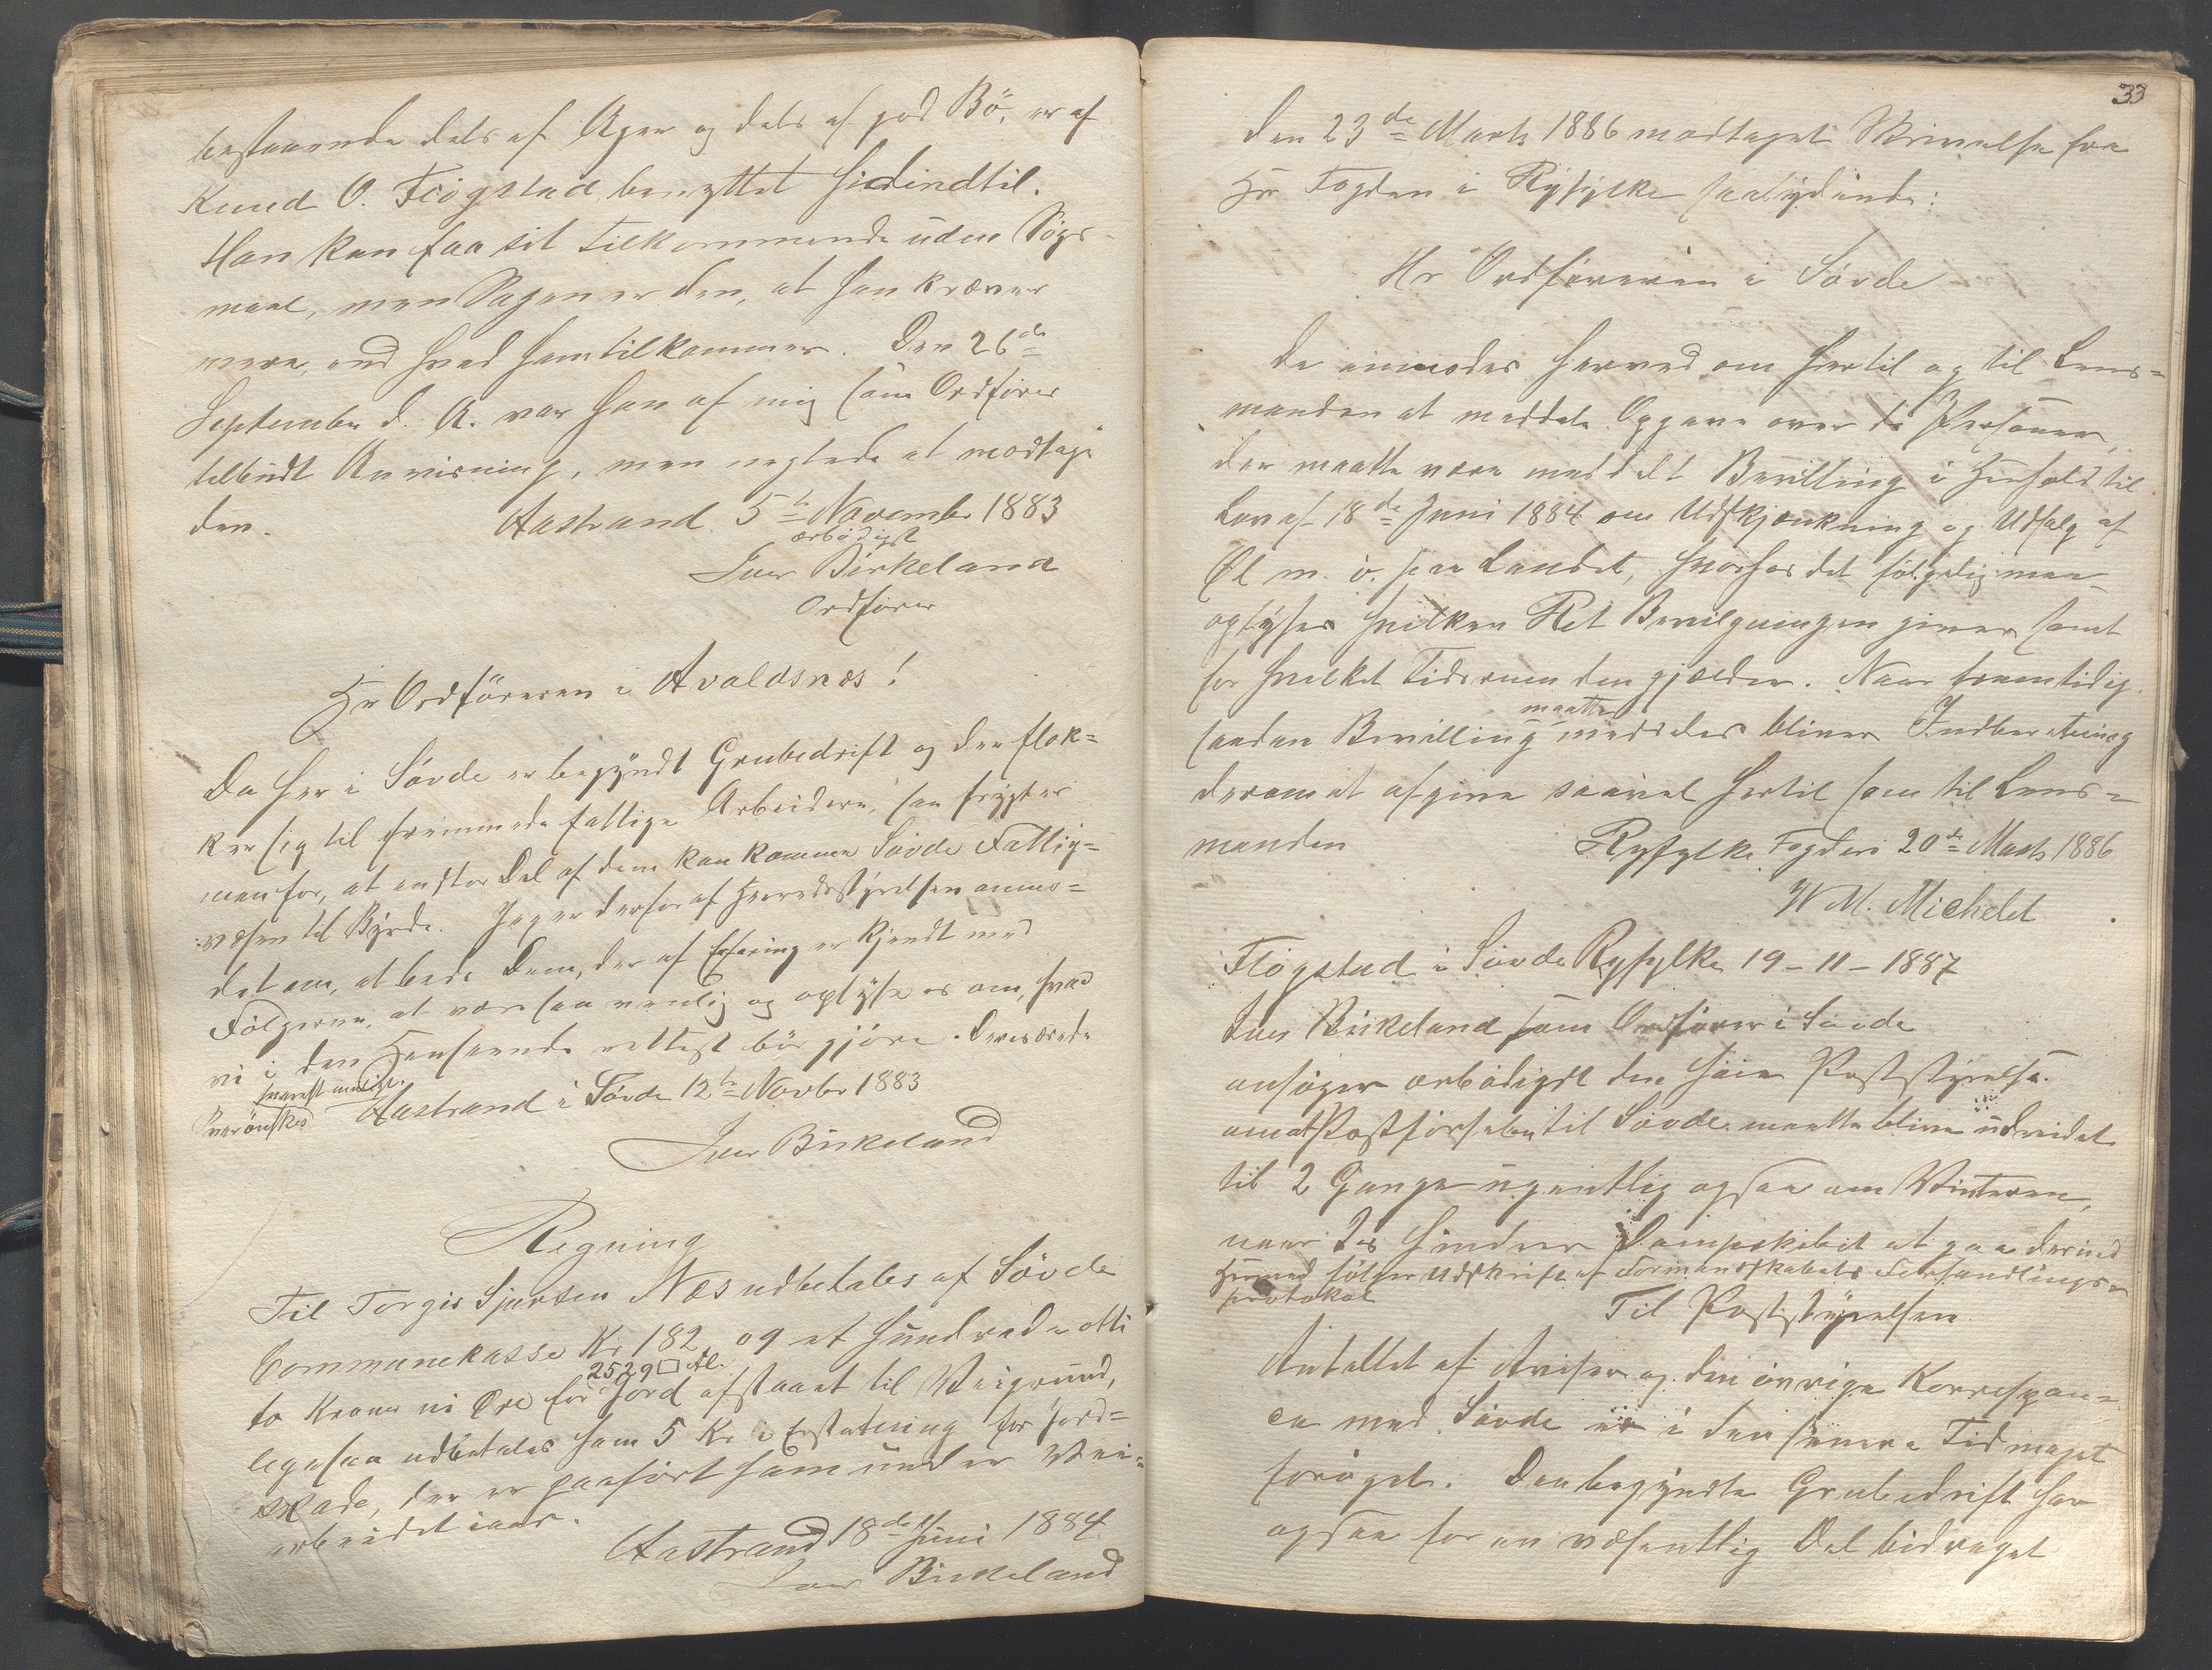 bestaaende dels af Ager og dels af god Bö, er af
Knud O. Fløgstad benyttet hidindtil.
Han kan faa sit Tilkommende uden Søgs-
maal, men Sagen er den, at han kræver
mere, end hvad ham tilkommer. Den 26de
September d. A. var han af mig som Ordfører
tilbudt Anvisning, men negtede at modtage
den. Aastrand 5te November 1883
ærbødigst
Iver Birkeland
Ordfører
Hr Ordføreren i Avaldsnæs!
Da her i Søvde er begyndt Grubedrift og der flok=
ker sig til fremmede fattige Arbeidere, saa frygter
man for, at endstor Del af dem kan komme Søvde Fattig=
væsen til Byrde. Jeg er derfor af Herredsstyrelsen anmo=
det om, at bede Dem, der af Erfaring er kjendt med
Følgerne, at være saa venlig og oplyse os om, hvad
vi i den Henseende rettest bör gjöre. Deres ærede
snarest mulige
Svar önskes Aastrand i Søvde 12te Novbr 1883
Iver Birkeland
Regning
Til Torgis Sjursen Næs udbetales af Søvde
Communekasse Kr 182,09 et hundrede otti
2529 □ Al.
to Kroner ni Øre for Jord afstaaet til Veigrund,
ligesaa udbetales ham 5 Kr i Erstatning for Jord=
skade, der er paaført ham under Vei=
arbeidet iaar.
Aastrand 18de Juni 1884
Iver Birkeland
33
Den 23de Marts 1886 modtaget Skrivelse fra
Hr Fogden i Ryfylke saalydende:
Hr Ordføreren i Søvde
De anmodes herved om hertil og til Lens=
manden at meddele Opgave over de Personer,
der maatte være meddelt Bevilling i Henhold til
Lov af 18de Juni 1884 om Udskjænkning og Udsalg af
Øl m. v. paa Landet, hvorfor det følgelig maa
oplyses hvilken Ret Bevilgningen giver samt
for hvilket Tidsrum den gjælder. Naar fremtidig
maatte
saadan Bevilling meddeles bliver Indberetning
derom at afgive saavel hertil som til Lens=
manden Ryfylke Fogderi 20de Marts 1886
W M. Michelet
Fløgstad i Søvde Ryfylke 19-11-1887
Iver Birkeland som Ordfører i Søvde
ansøger ærbødigst den høie Poststyrelse
om at Postførselen til Søvde maatte blive udvidet
til 2 Gange ugentlig ogsaa om Vinteren,
naar Is hindrer Dampskibet at gaa derind
Hermed følger Udskrift af Formandskabets Forhandlings=
protokol
Til Poststyrelsen
Antallet af Aviser og den øvrige Korrespon=
ce med Søvde er i den senere Tid meget
forøget. Den begyndte Grubedrift har
ogsaa for en væsentlig Del bidraget